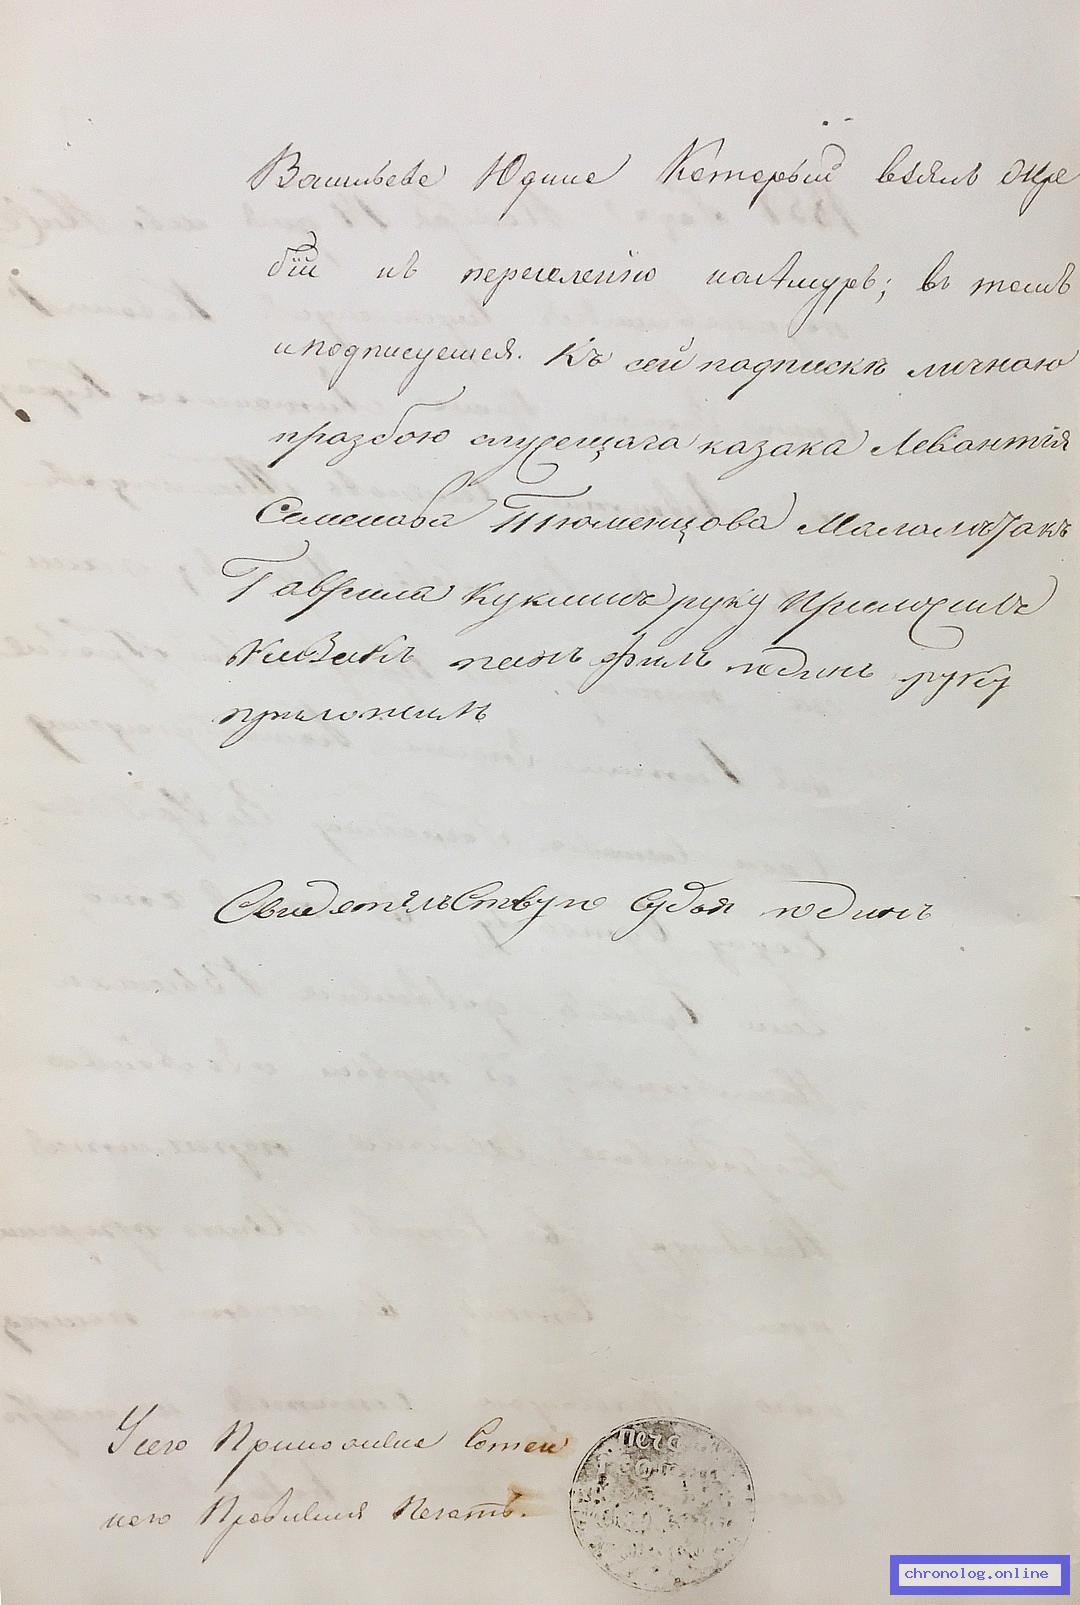 Васильеве Юдине Который взялъ жре
бiй къ переселенiю наАмуръ; въ томъ
иподписуемся. Къ сей подпискѣ личною
празбою служещаго казака Левантiя
Семенова Тюменцова Малолѣтокъ
Гаврила Куклинъ руку Приложилъ
Казакъ панъфилъ юдинъ руку
приложилъ
Свидѣтѣльствую Судья юдинъ
Усего Приложена Сотен
ного Правления Печать.
Печа
chronolog.online